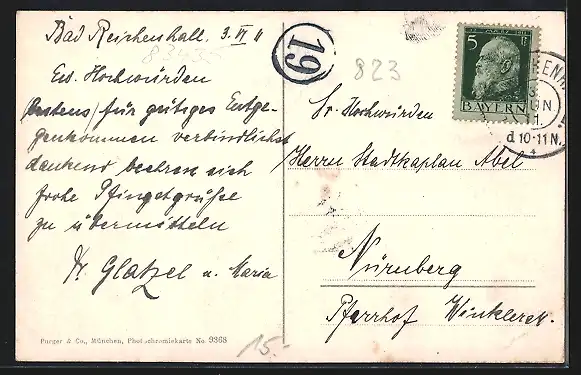 Bad Reichenhall. 3. VI 11
Ew. Hochwürden
bestens für gütiges Entge-
genkommen verbindlichst
dankend beehren sich
frohe Pfingstgrüße
zu übermitteln
Dr. Glatzel u. Maria
Purger & Co., München, Photochromiekarte No. 9368
15.-
19
823
5 Pf
BAYERN
JUN
11.
d 10-11 N.
Sr. Hochwürden
Herrn Stadtkaplan Abel
Nürnberg
Pfarrhof